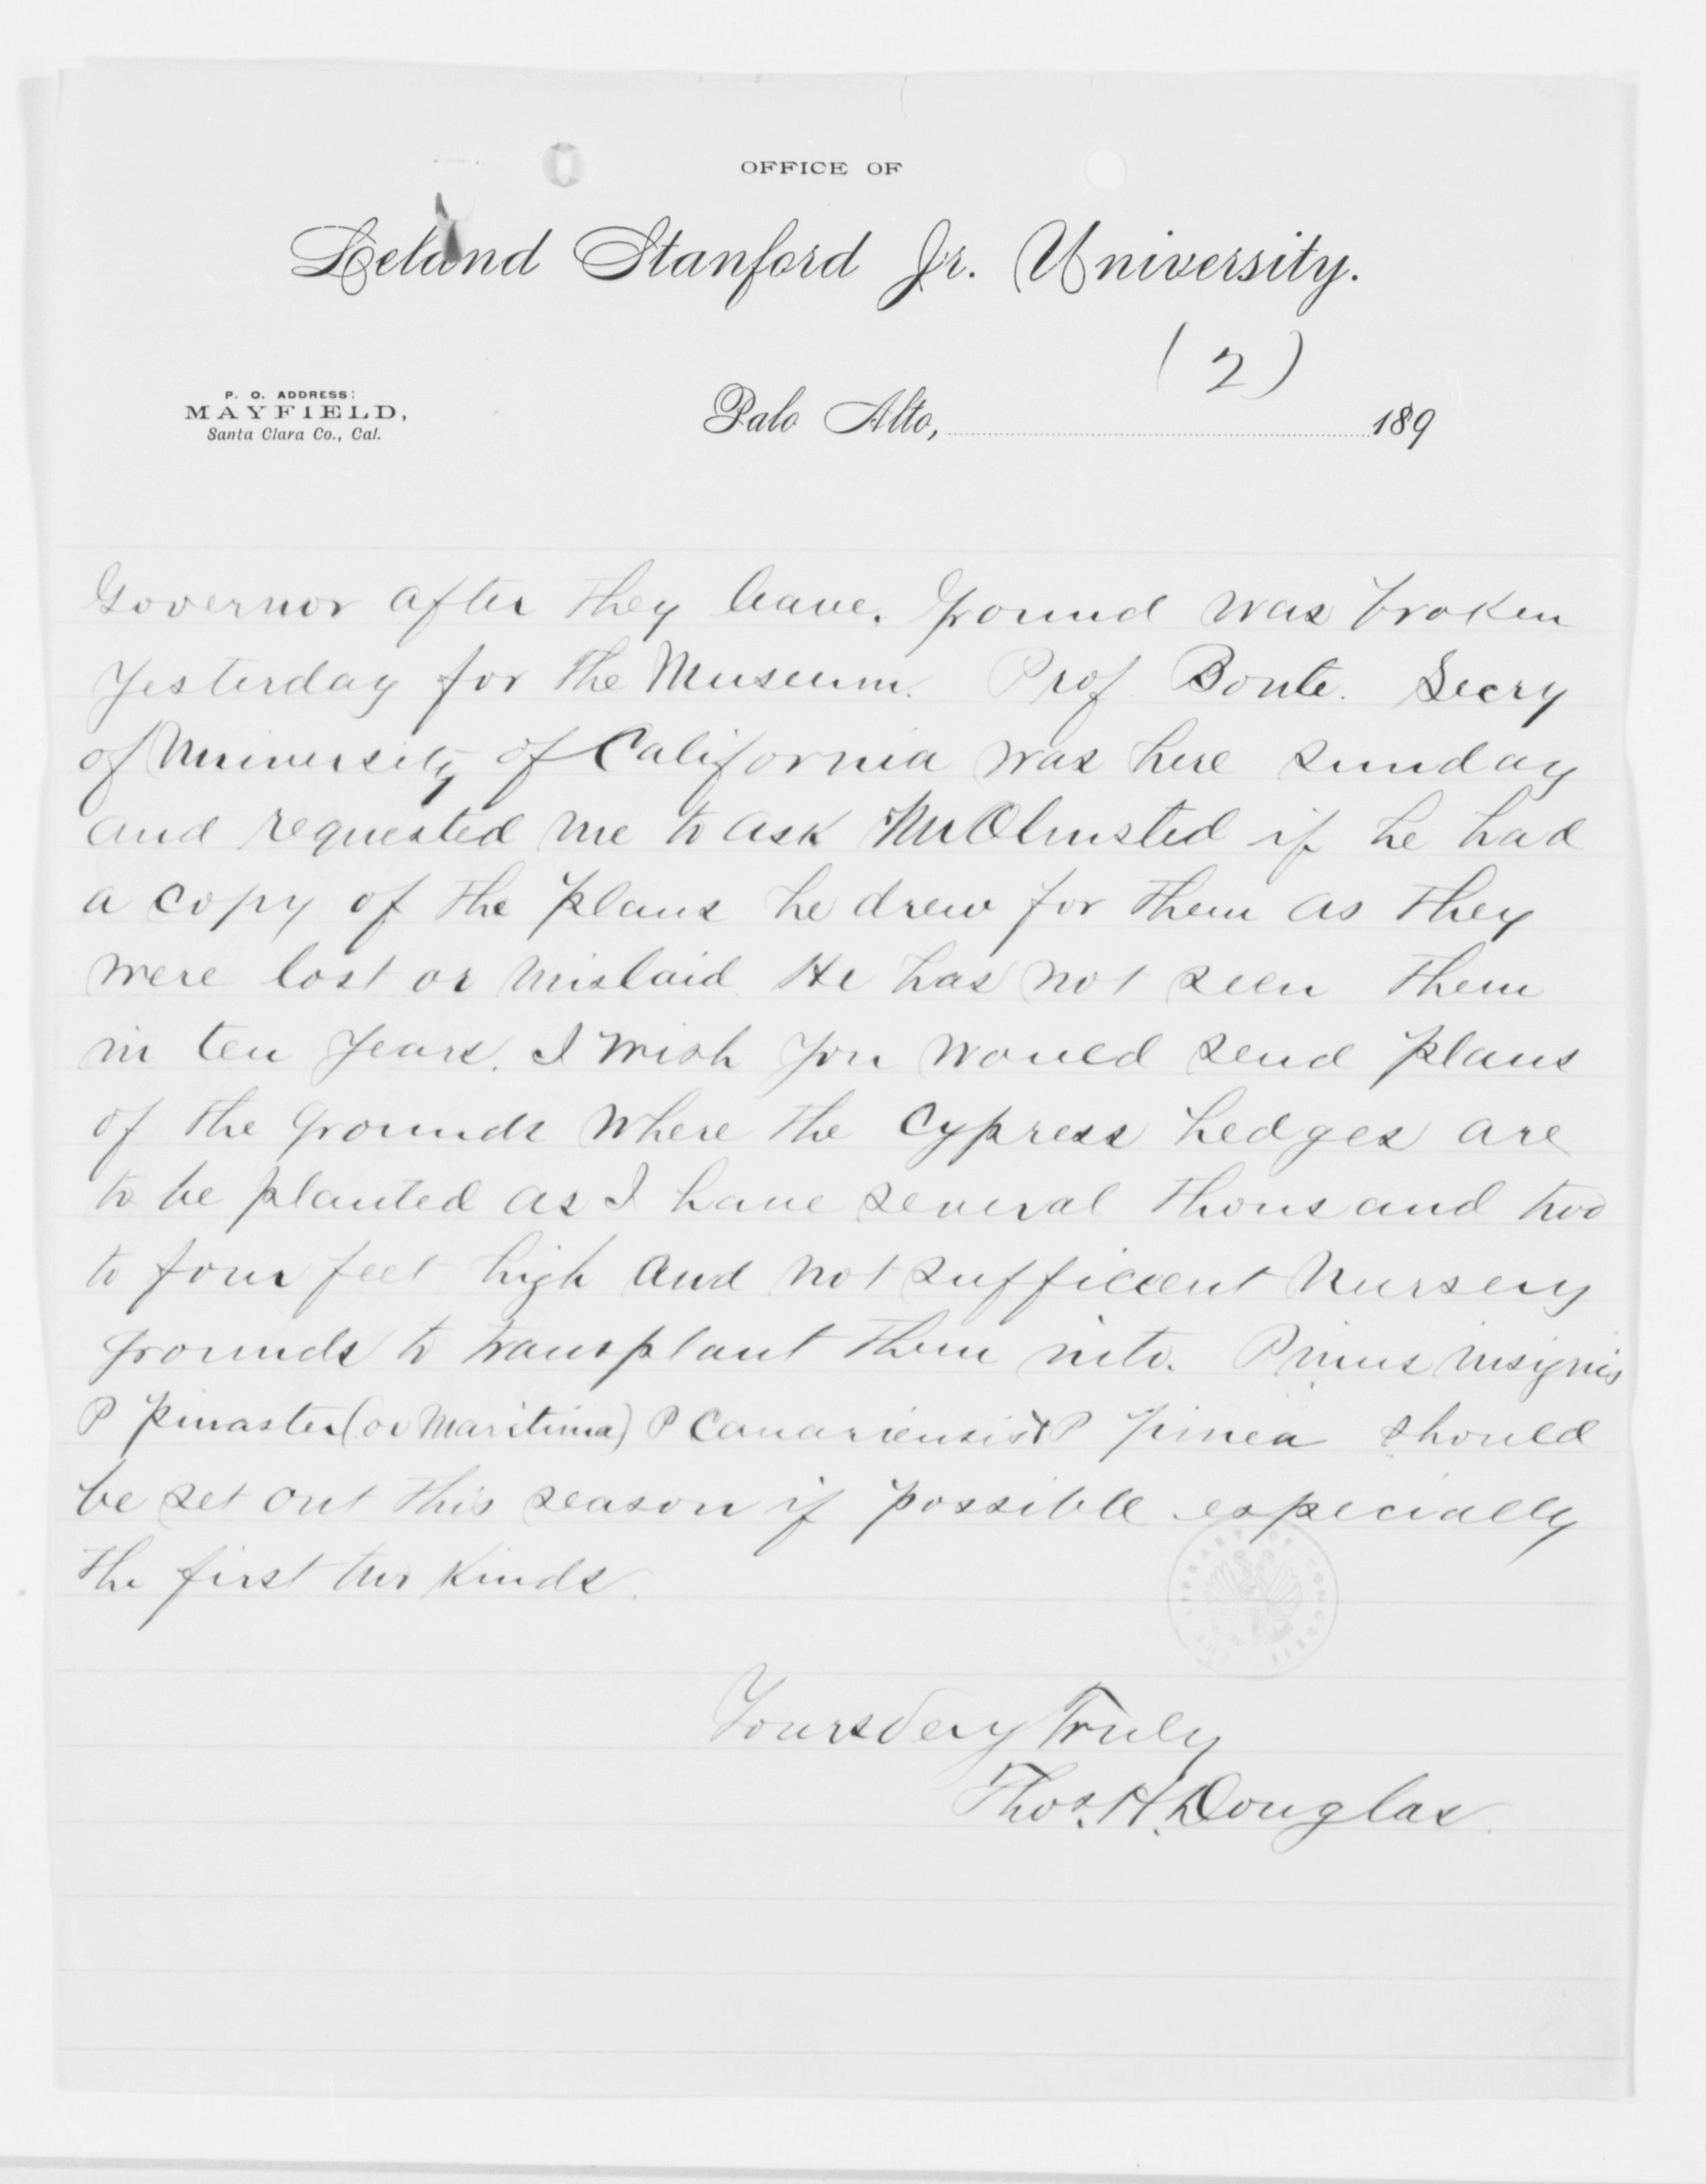 OFFICE OF
Leland Stanford Jr. University.
(2)
P. O. ADDRESS:
MAYFIELD,
Santa Clara Co., Cal.
Palo Alto, 189
Governor after they leave. Ground was broken
Yesterday for the Museum. Prof Bonte. Secry
of University of California was here Sunday
and requested me to ask Mr Olmsted if he had
a copy of the plans he drew for them as they
were lost or mislaid He has not seen them
in ten years. I wish you would send plans
of the grounds where the Cypress hedges are
to be planted as I have several thousand two
to four feet high and not sufficient Nursery
grounds to transplant them into. Pinus insignis
P pinaster (or Maritima) P Canariensis & P pinea should
be set out this season if possible especially
the first two kinds.
THE LIBRARY OF CONGRESS
Yours Very Truly
Thos. H. Douglas.